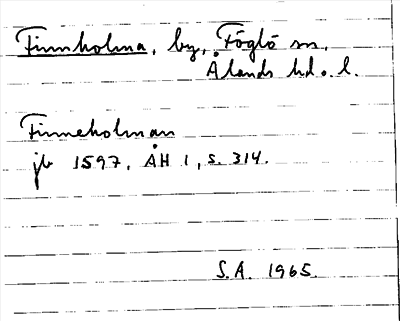 Finnholma, by, Föglö sn,
Ålands hd. o. l.
Finneholman
jb 1597, ÅH 1, s. 314.
S.A. 1965.